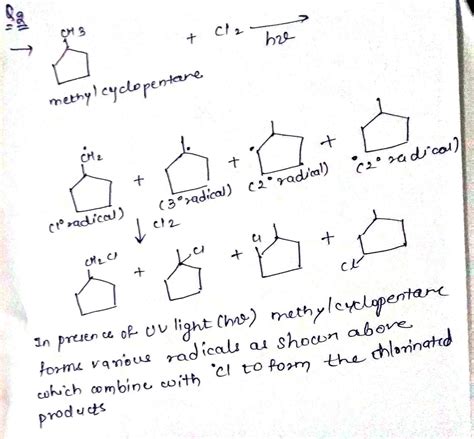 Q2
→ CH3 + Cl2 → hν
methylcyclopentane
ĊH2 + + +
(1° radical) (3° radical) (2° radical) (2° radical)
↓ Cl2
CH2Cl + Cl + Cl + Cl
In presence of UV light (hν) methylcyclopentane
forms various radicals as shown above
which combine with •Cl to form the chlorinated
products